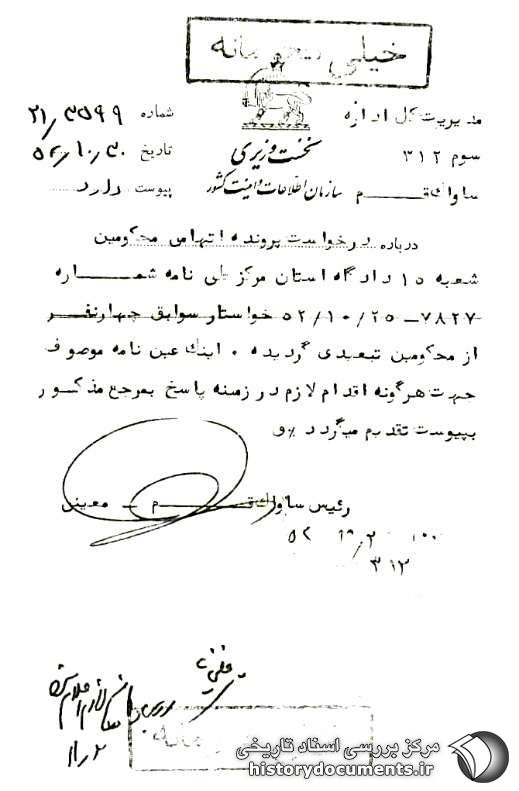 خیلی محرمانه
مدیریت کل اداره
سوم ۳۱۲
ساواک قم
نخست وزیری
سازمان اطلاعات و امنیت کشور
شماره ۲۱/۳۵۹۹
تاریخ ۵۲/۱۰/۳۰
پیوست دارد
درباره درخواست پرونده اتهامی محکومین
شعبه ۱۵ دادگاه استان مرکز طی نامه شماره
۷۸۲۷-۵۲/۱۰/۲۵ خواستار سوابق چهارنفر
از محکومین تبعیدی گردیده ۰ اینك عین نامه موصوف
جهت هرگونه اقدام لازم در زمینه پاسخ بمرجع مذکور
بپیوست تقدیم میگردد
رئیس ساواک قم - معینی
۳۱۲
خیلی محرمانه
مرکز بررسی اسناد تاریخی
historydocuments.ir